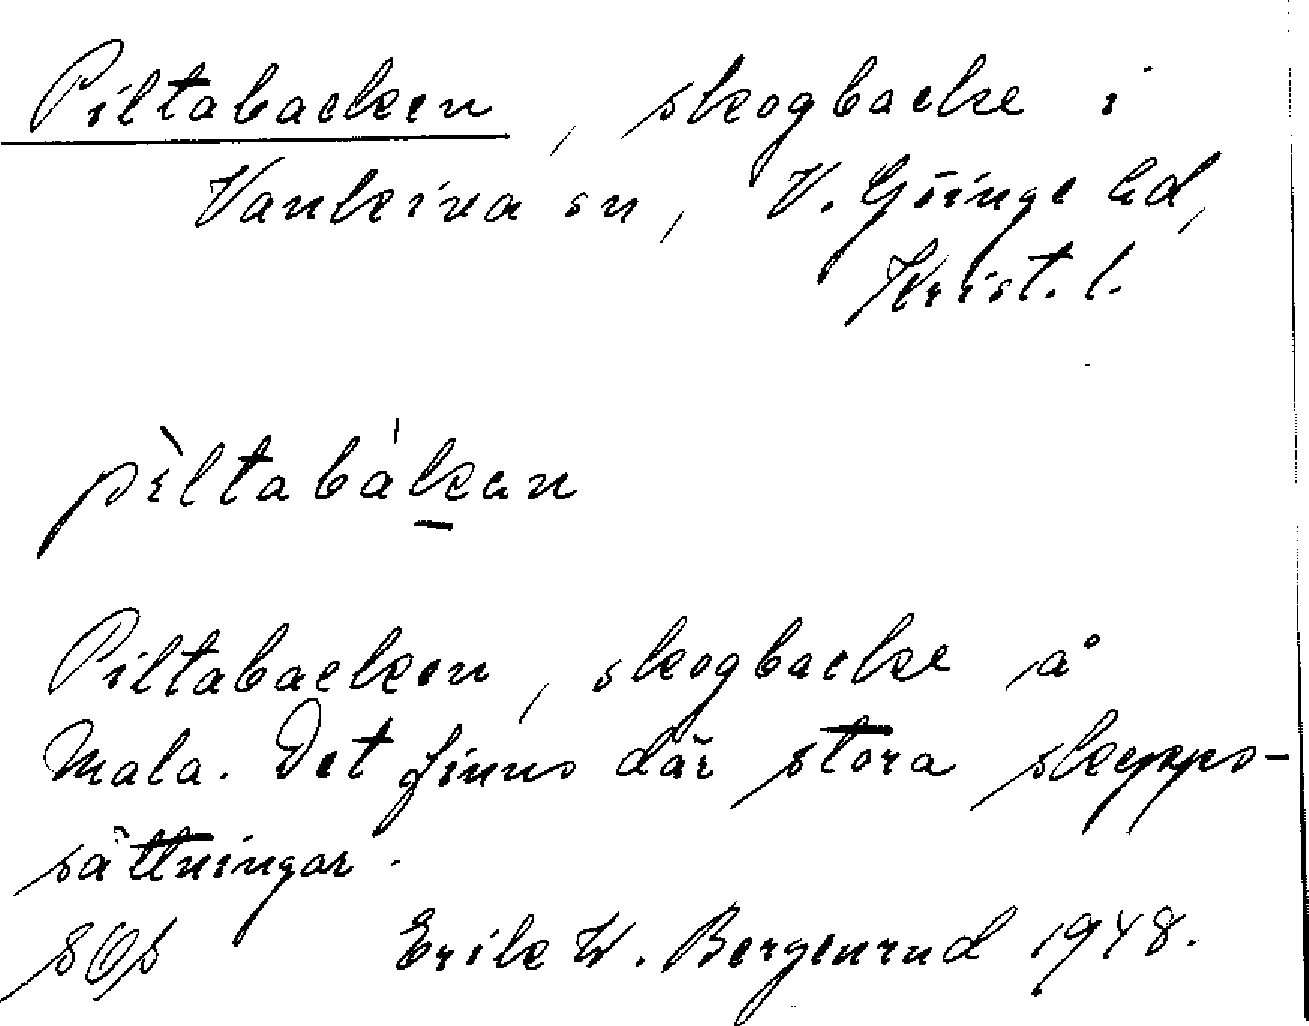 Piltabacken, skogbacke i
Vankiva sn, V. Göinge hd,
Krist. l.
pìltabákan
Piltabacken, skogbacke å
Mala. Det finns där stora skepps-
sättningar.
Erik W. Bergenrud 1948.